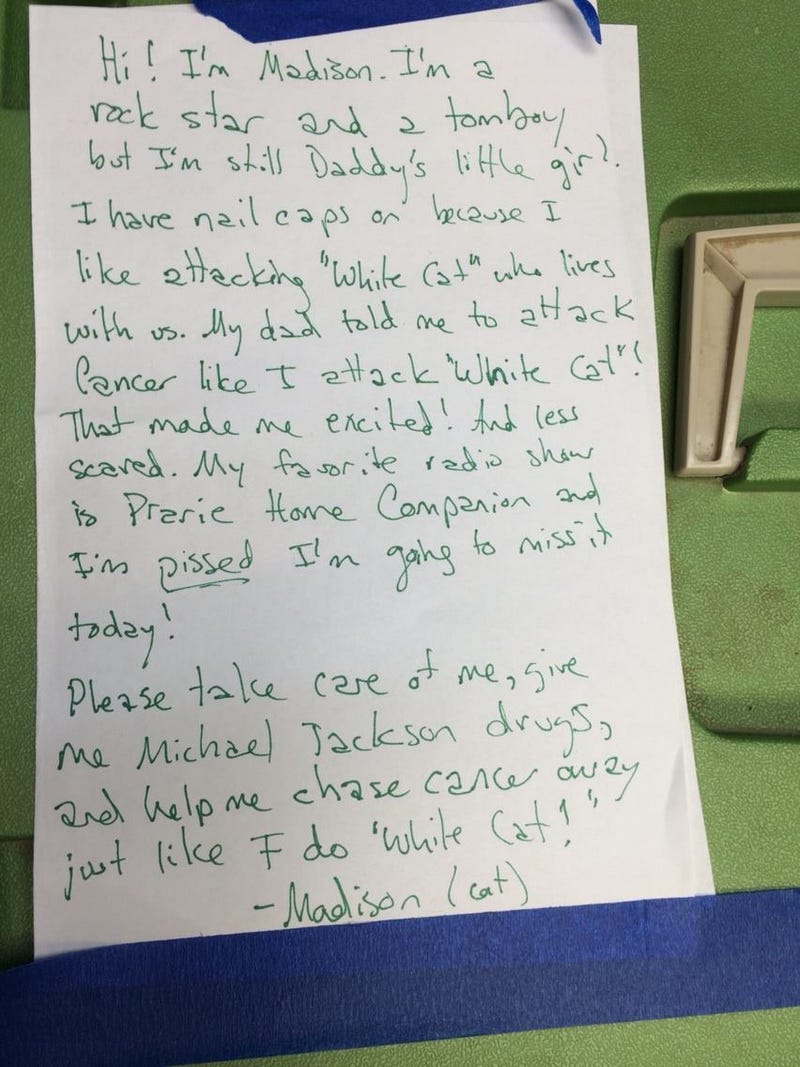 Hi! I'm Madison. I'm a
rock star and a tomboy
but I'm still Daddy's little girl.
I have nail caps on because I
like attacking "White Cat" who lives
with us. My dad told me to attack
Cancer like I attack "White Cat"!
That made me excited! And less
scared. My favorite radio show
is Prarie Home Companion and
I'm pissed I'm going to miss it
today!
Please take care of me, give
me Michael Jackson drugs,
and help me chase cancer away
just like I do "White Cat!"
- Madison (cat)